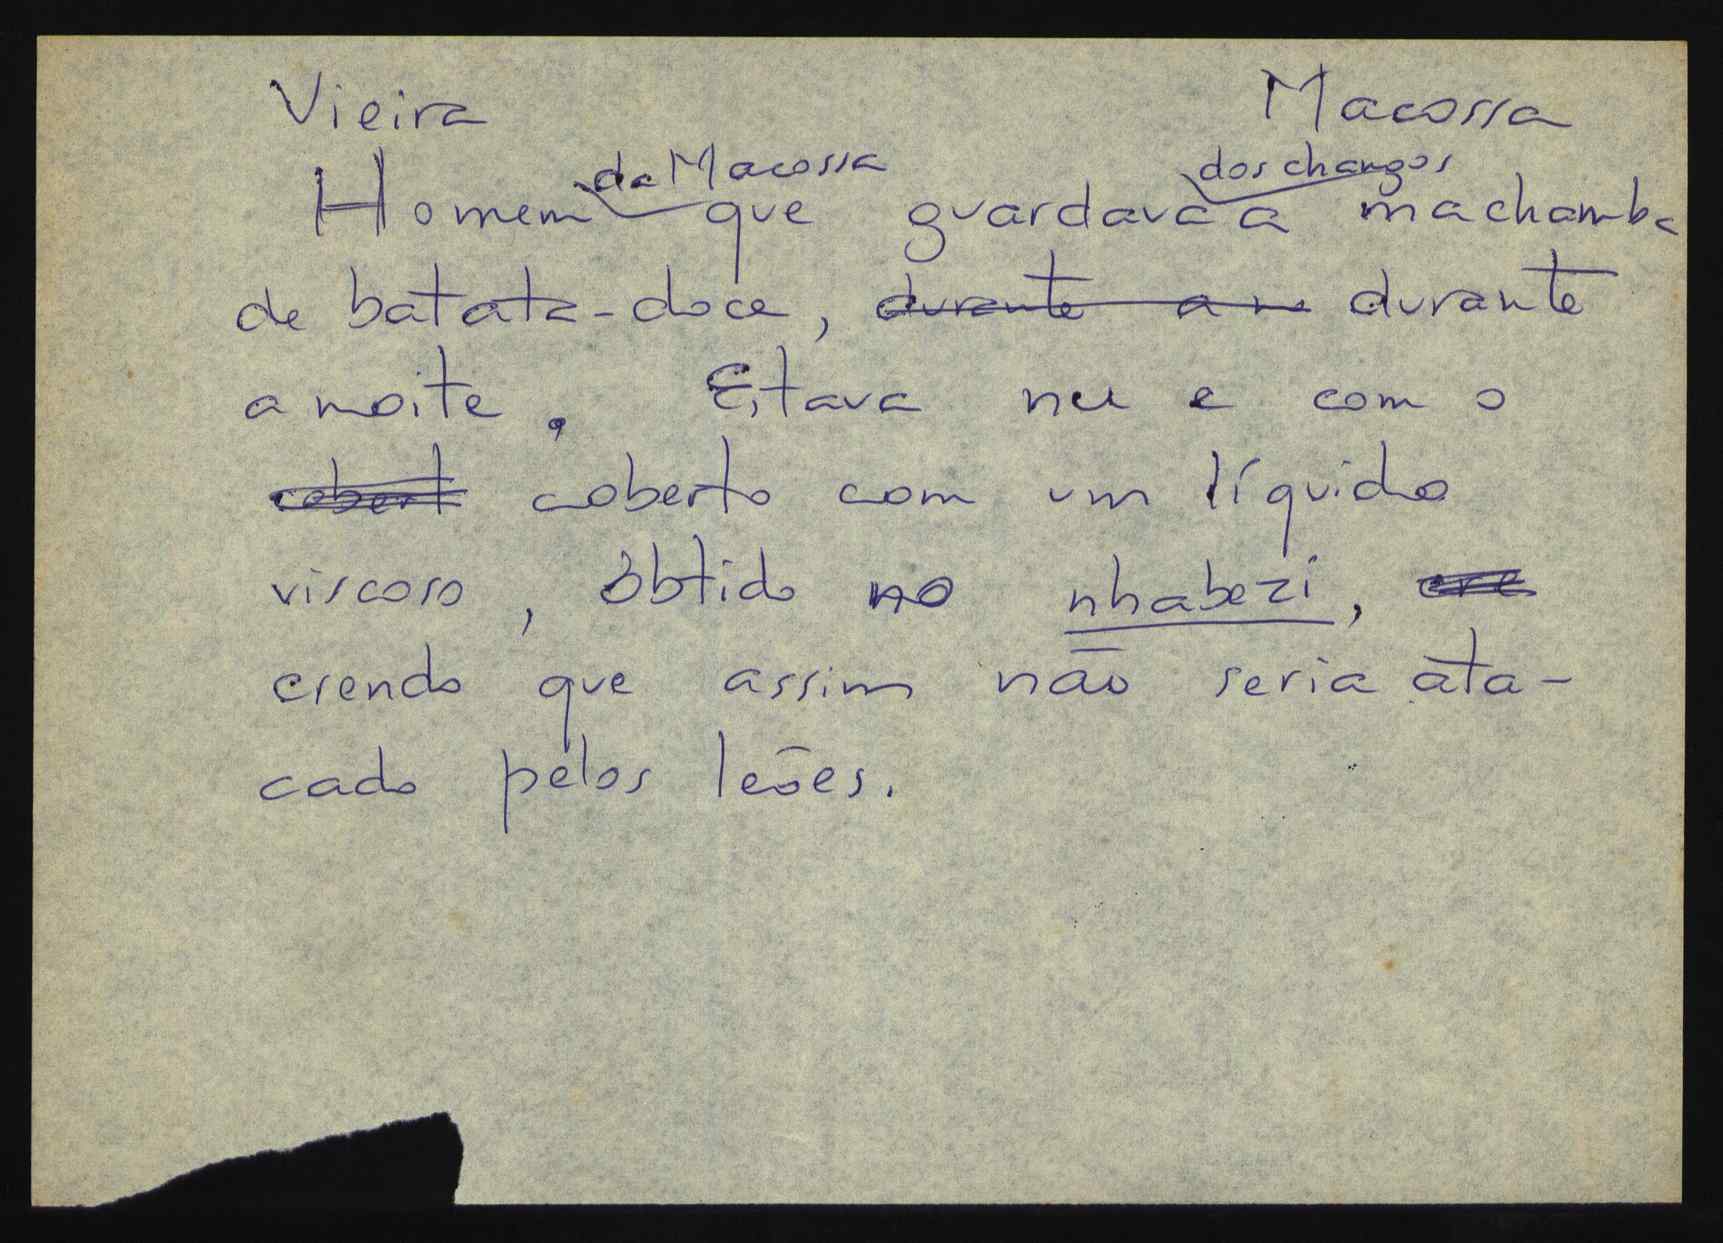 Vieira Macossa
de Macossa dos changos
Homem que guardava a machamba
de batata-doce, durante a n durante
a noite. Estava nu e com o
cobert coberto com um líquido
viscoso, obtido no nhabezi, cre
crendo que assim não seria ata-
cado pelos leões.